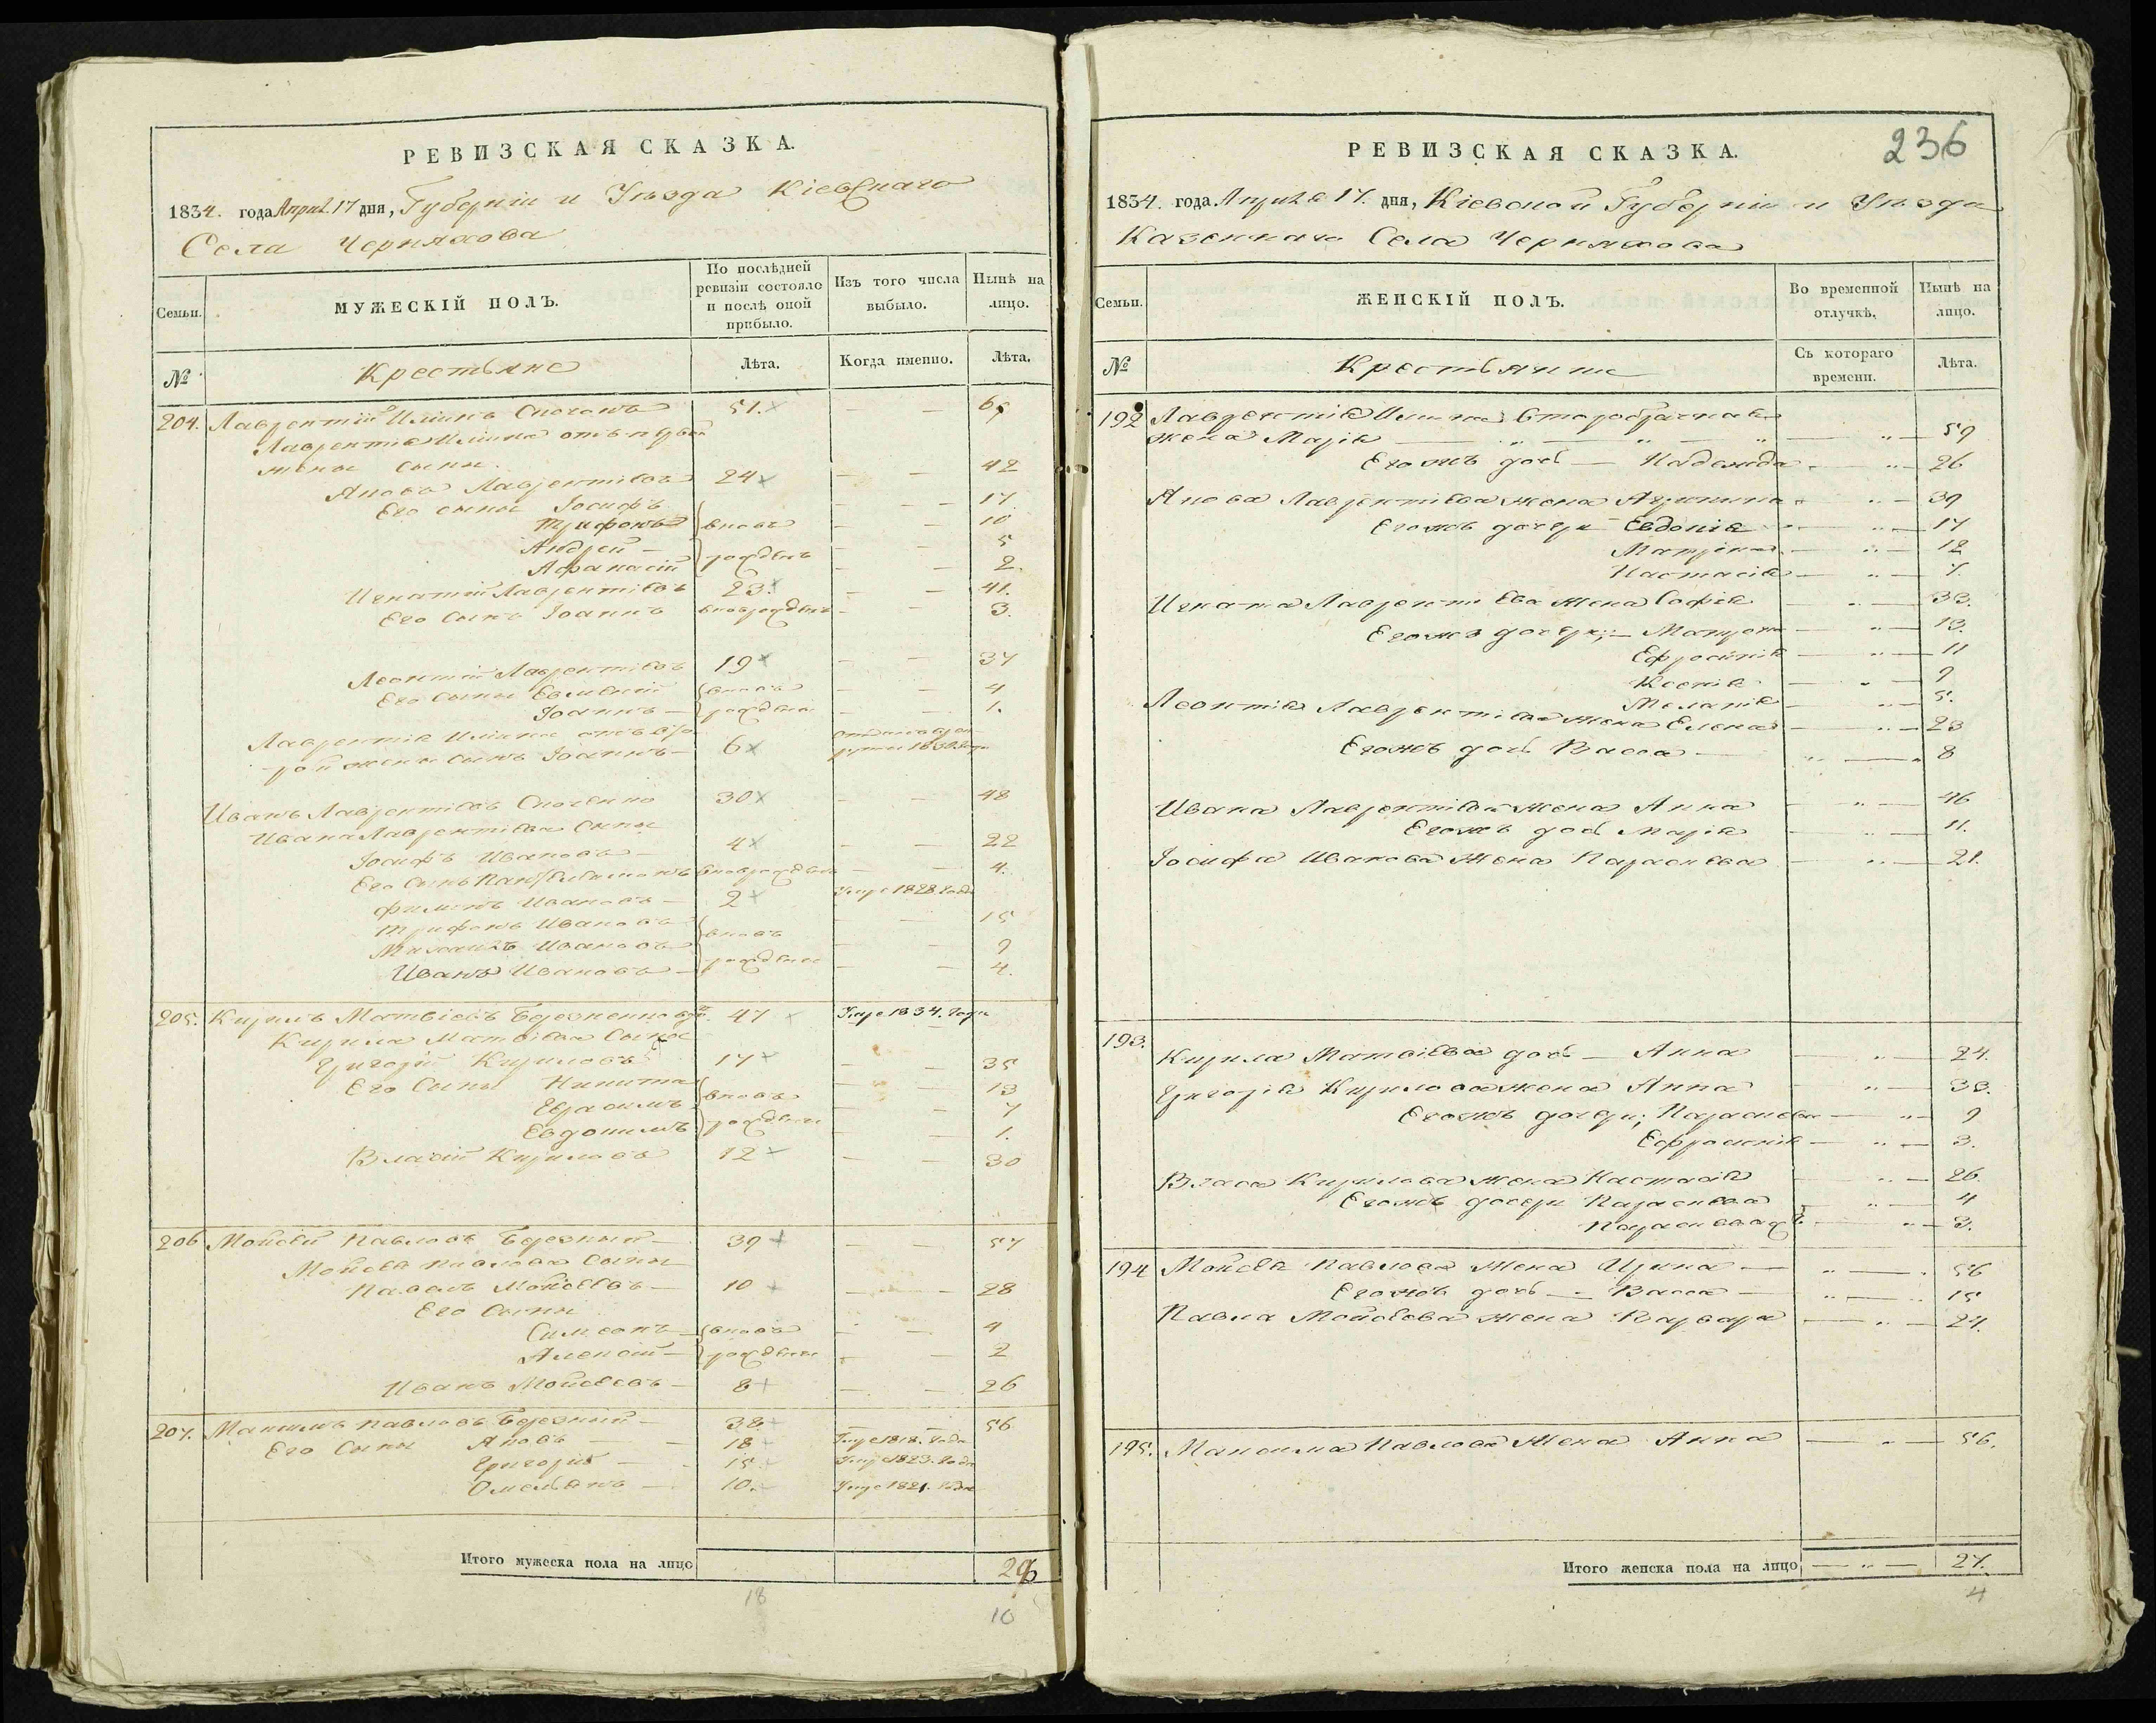 РЕВИЗСКАЯ СКАЗКА.
1834. года Апрѣл. 17 дня, Губерніи и Уѣзда Кіевскаго
Села Черняхова
Семьи.
МУЖЕСКІЙ ПОЛЪ.
По послѣдней ревизіи состояло и послѣ оной прибыло.
Изъ того числа выбыло.
Нынѣ на лицо.
№
Крестьяне
Лѣта.
Когда именно.
Лѣта.
204. Лаврентій 51. — —
Лаврентія отъ первой
жены сыны.
Лаврентіевъ 24 — — 42
Его сыны Іосифъ — — 17
Трифонъ вновь — — 10
Андрей — — — 5
Афанасій рожденъ — — 2.
Игнатій Лаврентіевъ 23. — — 41.
Его сынъ Іоаннъ вновь рожденъ — — 3.
Леонтій Лаврентіевъ 19 — — 37
Его сыны вновь — — 4
Іоаннъ — рождены — — 1.
Лаврентія отъ вто-
рой жены сынъ Іоаннъ — 6
Иванъ Лаврентіевъ 30 — — 48
Ивана Лаврентіева сыны
Іосифъ Ивановъ — 4 — — 22
Его сынъ вновь рожденъ — — 4.
Ивановъ — 2 Умре 1828. года
Трифонъ Ивановъ вновь — — 15
Михаилъ Ивановъ — — 9
Иванъ Ивановъ — рождены — — 4.
205. Кирилъ Матвіевъ 47 Умре 1834. года
Кирила Матвіева сыны
Григорій Кириловъ 17 — — 35
Его сыны Никита — — 13
вновь — — 7
Евдокимъ рождены — — 1.
Власій Кириловъ 12 — — 30
206 Мойсей Павловъ Березный — 39 — — 57
Мойсея Павлова сыны
Павелъ Мойсеевъ — 10 — — 28
Его сыны
Симеонъ — вновь — — 4
Алексій — рождены — — 2
Иванъ Мойсеевъ — 8 — — 26
207. Максимъ Павловъ Березный — 38. — 56
Его сыны — 18 Умре 1818. года
Григорій — 15 Умре 1823. года
10. Умре 1821. года
Итого мужеска пола на лицо
18
10
236
РЕВИЗСКАЯ СКАЗКА.
1834. года Апрѣля 17. дня, Кіевской Губерніи и Уѣзда
Казеннаго Села Черняхова
Семьи.
ЖЕНСКІЙ ПОЛЪ.
Во временной отлучкѣ.
Нынѣ на лицо.
№
Крестьяне
Съ котораго времени.
Лѣта.
192 Лаврентія второбрачная
жена Марія — — — 59
Его жъ дочь — Надежда — 26
Лаврентіева жена — 39
Его жъ дочери Евдокія — 17
— 12
Настасія — 7.
Игната Лаврентіева жена Софія — 33.
Его жъ дочери; — — 13.
Ефросинія — 11
Ксенія — 9
Меланія — 5.
Леонтія Лаврентіева жена Елена — 23
Его жъ дочь Васса — — 8
Ивана Лаврентіева жена Анна — 46
Его жъ дочь Марія — 11.
Іосифа Иванова жена Параскева — 21.
193. Кирила Матвіева дочь — Анна — 24.
Григорія Кирилова жена Анна — 33.
Его жъ дочери; Параскева — 9
Ефросинія — 3.
Власа Кирилова жена Настасія — 26.
Его жъ дочери Параскева — 4
Параскева — 3.
194 Мойсея Павлова жена Ирина — — 56
Его жъ дочь — Васса — — 15
Павла Мойсеева жена Варвара — 27.
195. Максима Павлова жена Анна — 56.
Итого женска пола на лицо — 27.
4